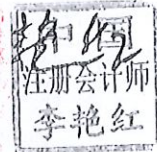 中国
注册会计师
李艳红